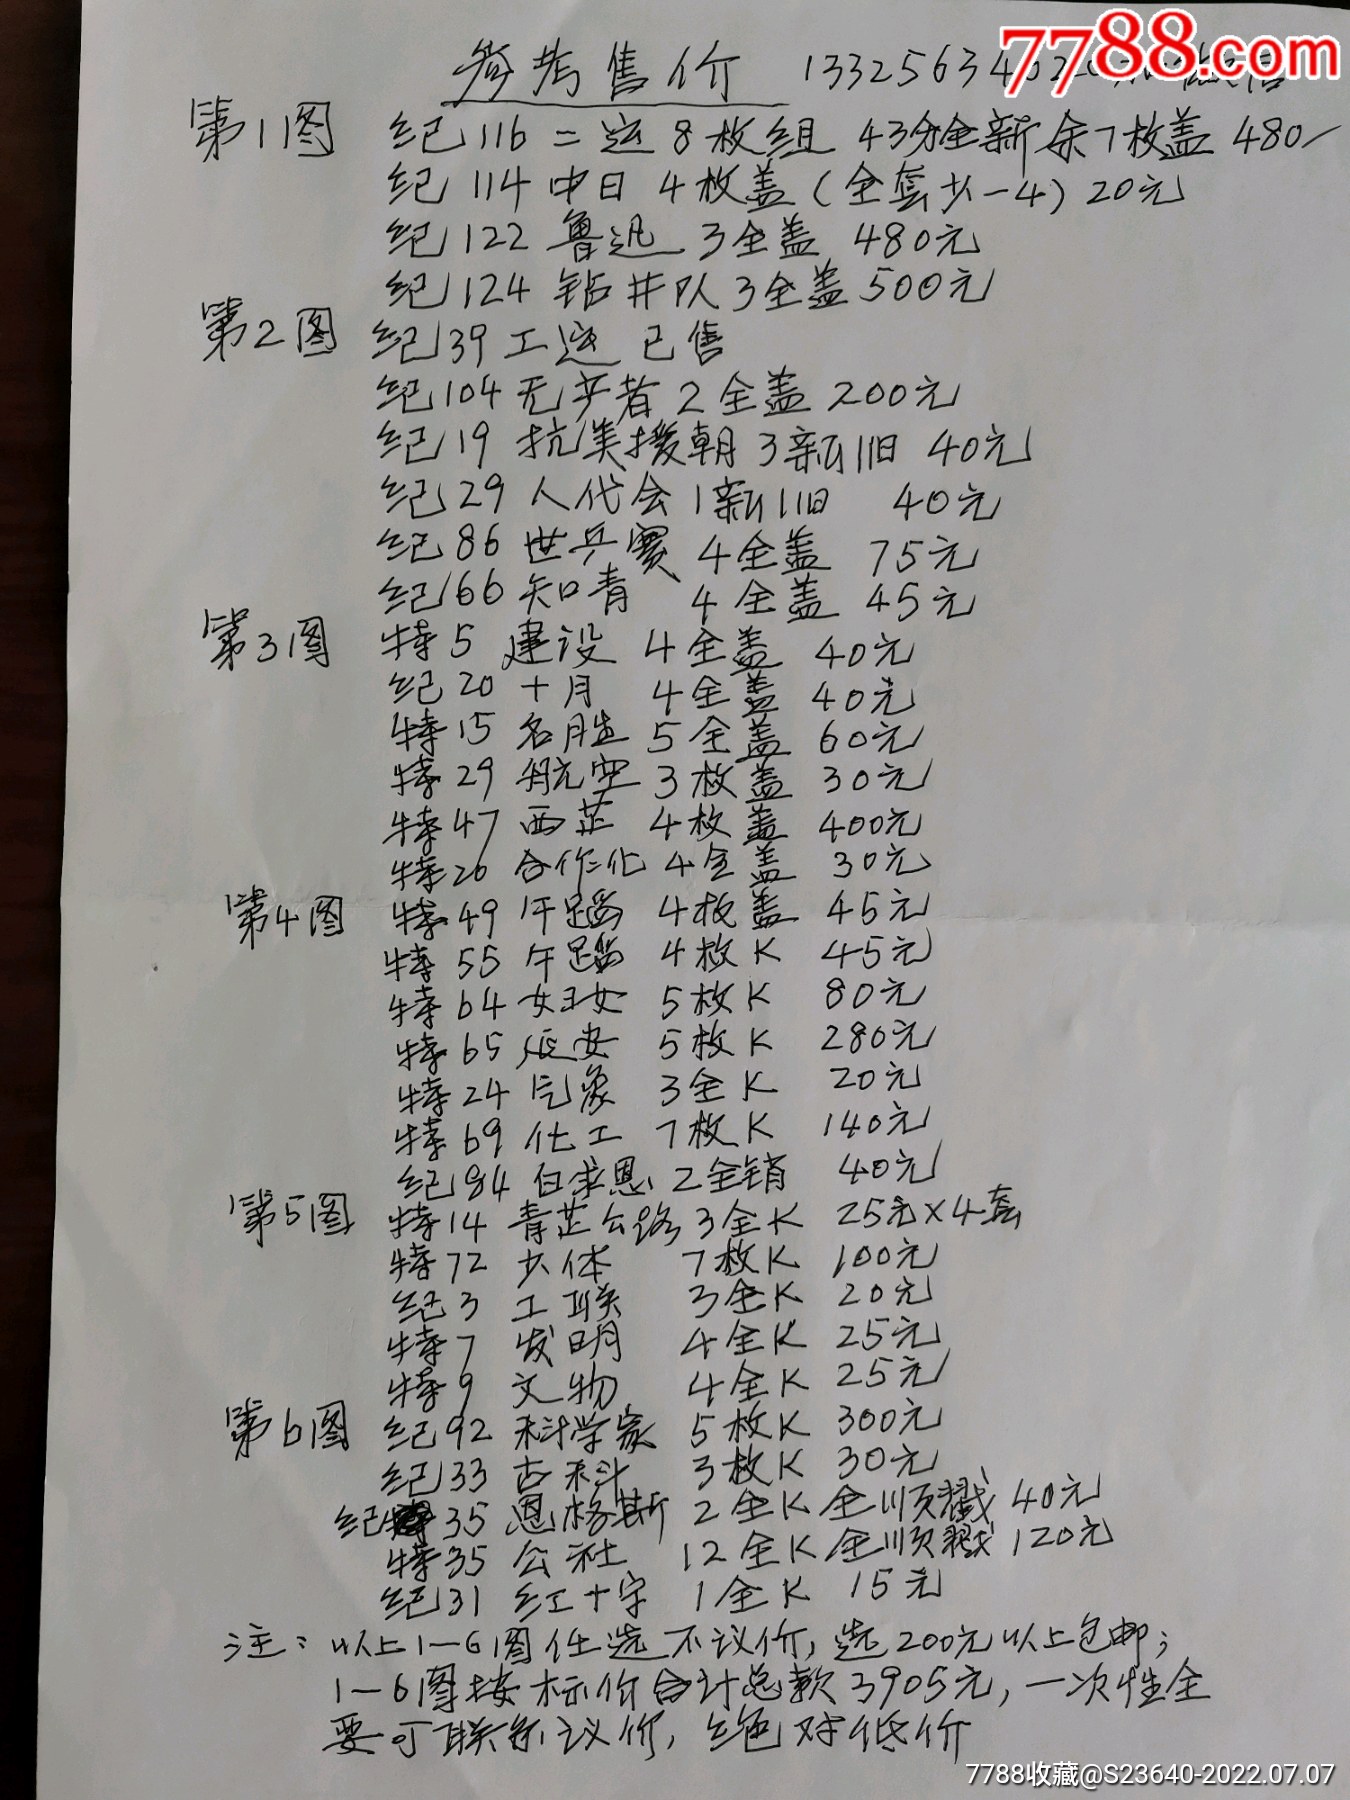 7788.com
参考售价 1332563402
第1图 纪116 二运 8枚组 43分全新余7枚盖 480/
纪114 中日 4枚盖(全套少-4) 20元
纪122 鲁迅 3全盖 480元
纪124 钻井队 3全盖 500元
第2图 纪39 工运 已售
纪104 无产者 2全盖 200元
纪19 抗美援朝 3新1旧 40元
纪29 人代会 1新1旧 40元
纪86 世乒赛 4全盖 75元
纪66 知青 4全盖 45元
第3图 特5 建设 4全盖 40元
纪20 十月 4全盖 40元
特15 名胜 5全盖 60元
特29 航空 3枚盖 30元
特47 西芷 4枚盖 400元
特26 合作化 4全盖 30元
第4图 特49 午蹈 4枚盖 45元
特55 午蹈 4枚K 45元
特64 女 5枚K 80元
特65 延安 5枚K 280元
特24 气象 3全K 20元
特69 化工 7枚K 140元
纪84 白求恩 2全销 40元
第5图 特14 青芷公路 3全K 25元×4套
特72 少体 7枚K 100元
纪3 工联 3全K 20元
特7 发明 4全K 25元
特9 文物 4全K 25元
第6图 纪92 科学家 5枚K 300元
纪33 古科 3枚K 30元
纪35 恩格斯 2全K全顺戳 40元
特35 公社 12全K全顺戳 120元
纪31 红十字 1全K 15元
注:以上1-6图任选不议价,选200元以上包邮;
1-6图按标价合计总款3905元,一次性全
要可联系议价,绝对低价
7788收藏@S23640-2022.07.07